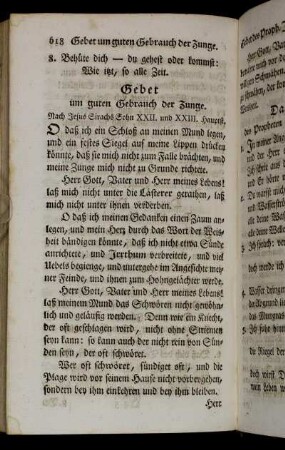 618 Gebet um guten Gebrauch der Zunge.
8. Behüte dich — du gehest oder kommst:
Wie itzt, so alle Zeit.
Gebet
um guten Gebrauch der Zunge.
Nach Jesus Sirachs Sohn XXII. und XXIII. Hauptst.
O daß ich ein Schloß an meinen Mund legen,
und ein festes Siegel auf meine Lippen drücken
könnte, daß sie mich nicht zum Falle brächten, und
meine Zunge mich nicht zu Grunde richtete.
Herr Gott, Vater und Herr meines Lebens!
laß mich nicht unter die Lästerer gerathen, laß
mich nicht unter ihnen verderben.
O daß ich meinen Gedanken einen Zaum an-
legen, und mein Herz durch das Wort der Weis-
heit bändigen könnte, daß ich nicht etwa Sünde
anrichtete, und Irrthum verbreitete, und viel
Uebels begienge, und untergehe im Angesichte mei-
ner Feinde, und ihnen zum Hohngelächter werde.
Herr Gott, Vater und Herr meines Lebens!
laß meinem Mund das Schwören nicht gewöhn-
lich und geläufig werden. Denn wie ein Knecht,
der oft geschlagen wird, nicht ohne Striemen
seyn kann: so kann auch der nicht rein von Sün-
den seyn, der oft schwöret.
Wer oft schwöret, sündiget oft, und die
Plage wird vor seinem Hause nicht vorbeygehen,
sondern bey ihm einkehren und bey ihm bleiben.
Herr